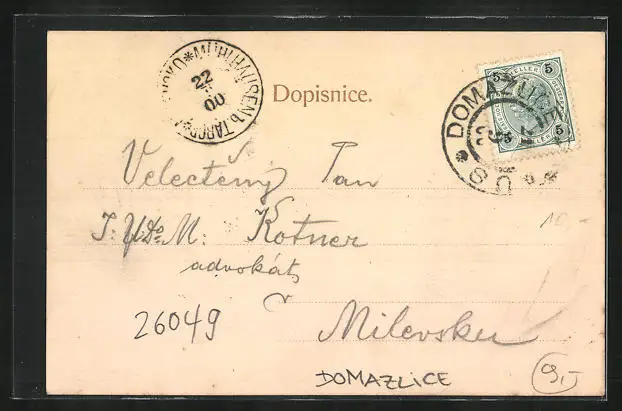 MÜHLHAUSEN b. TABOR
22
00
Dopisnice.
5 HELLER 5
5 5
DOMAŽLICE
Velectěný Pan
J. U. Dr. M. Kotner
advokát
v Milevsku
26049
DOMAZLICE
10,-
9,-